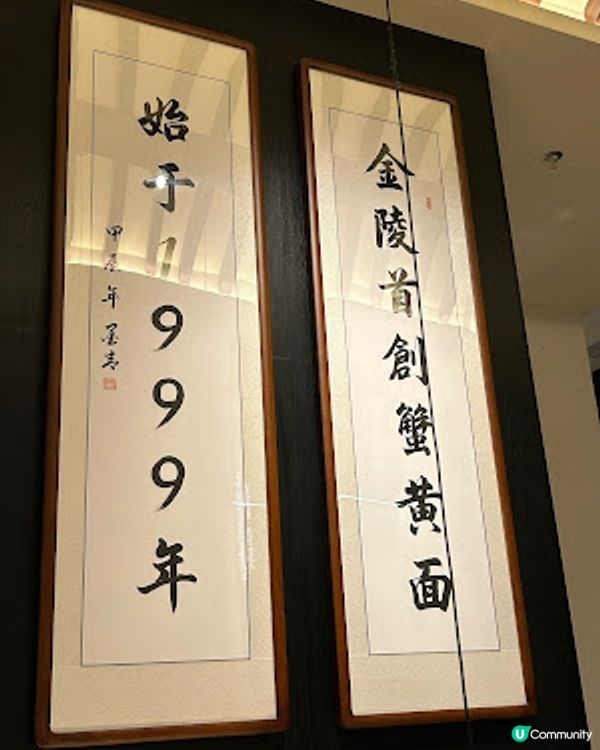 金陵首創蟹黃面
始于1999年
甲辰年 墨青
U Community